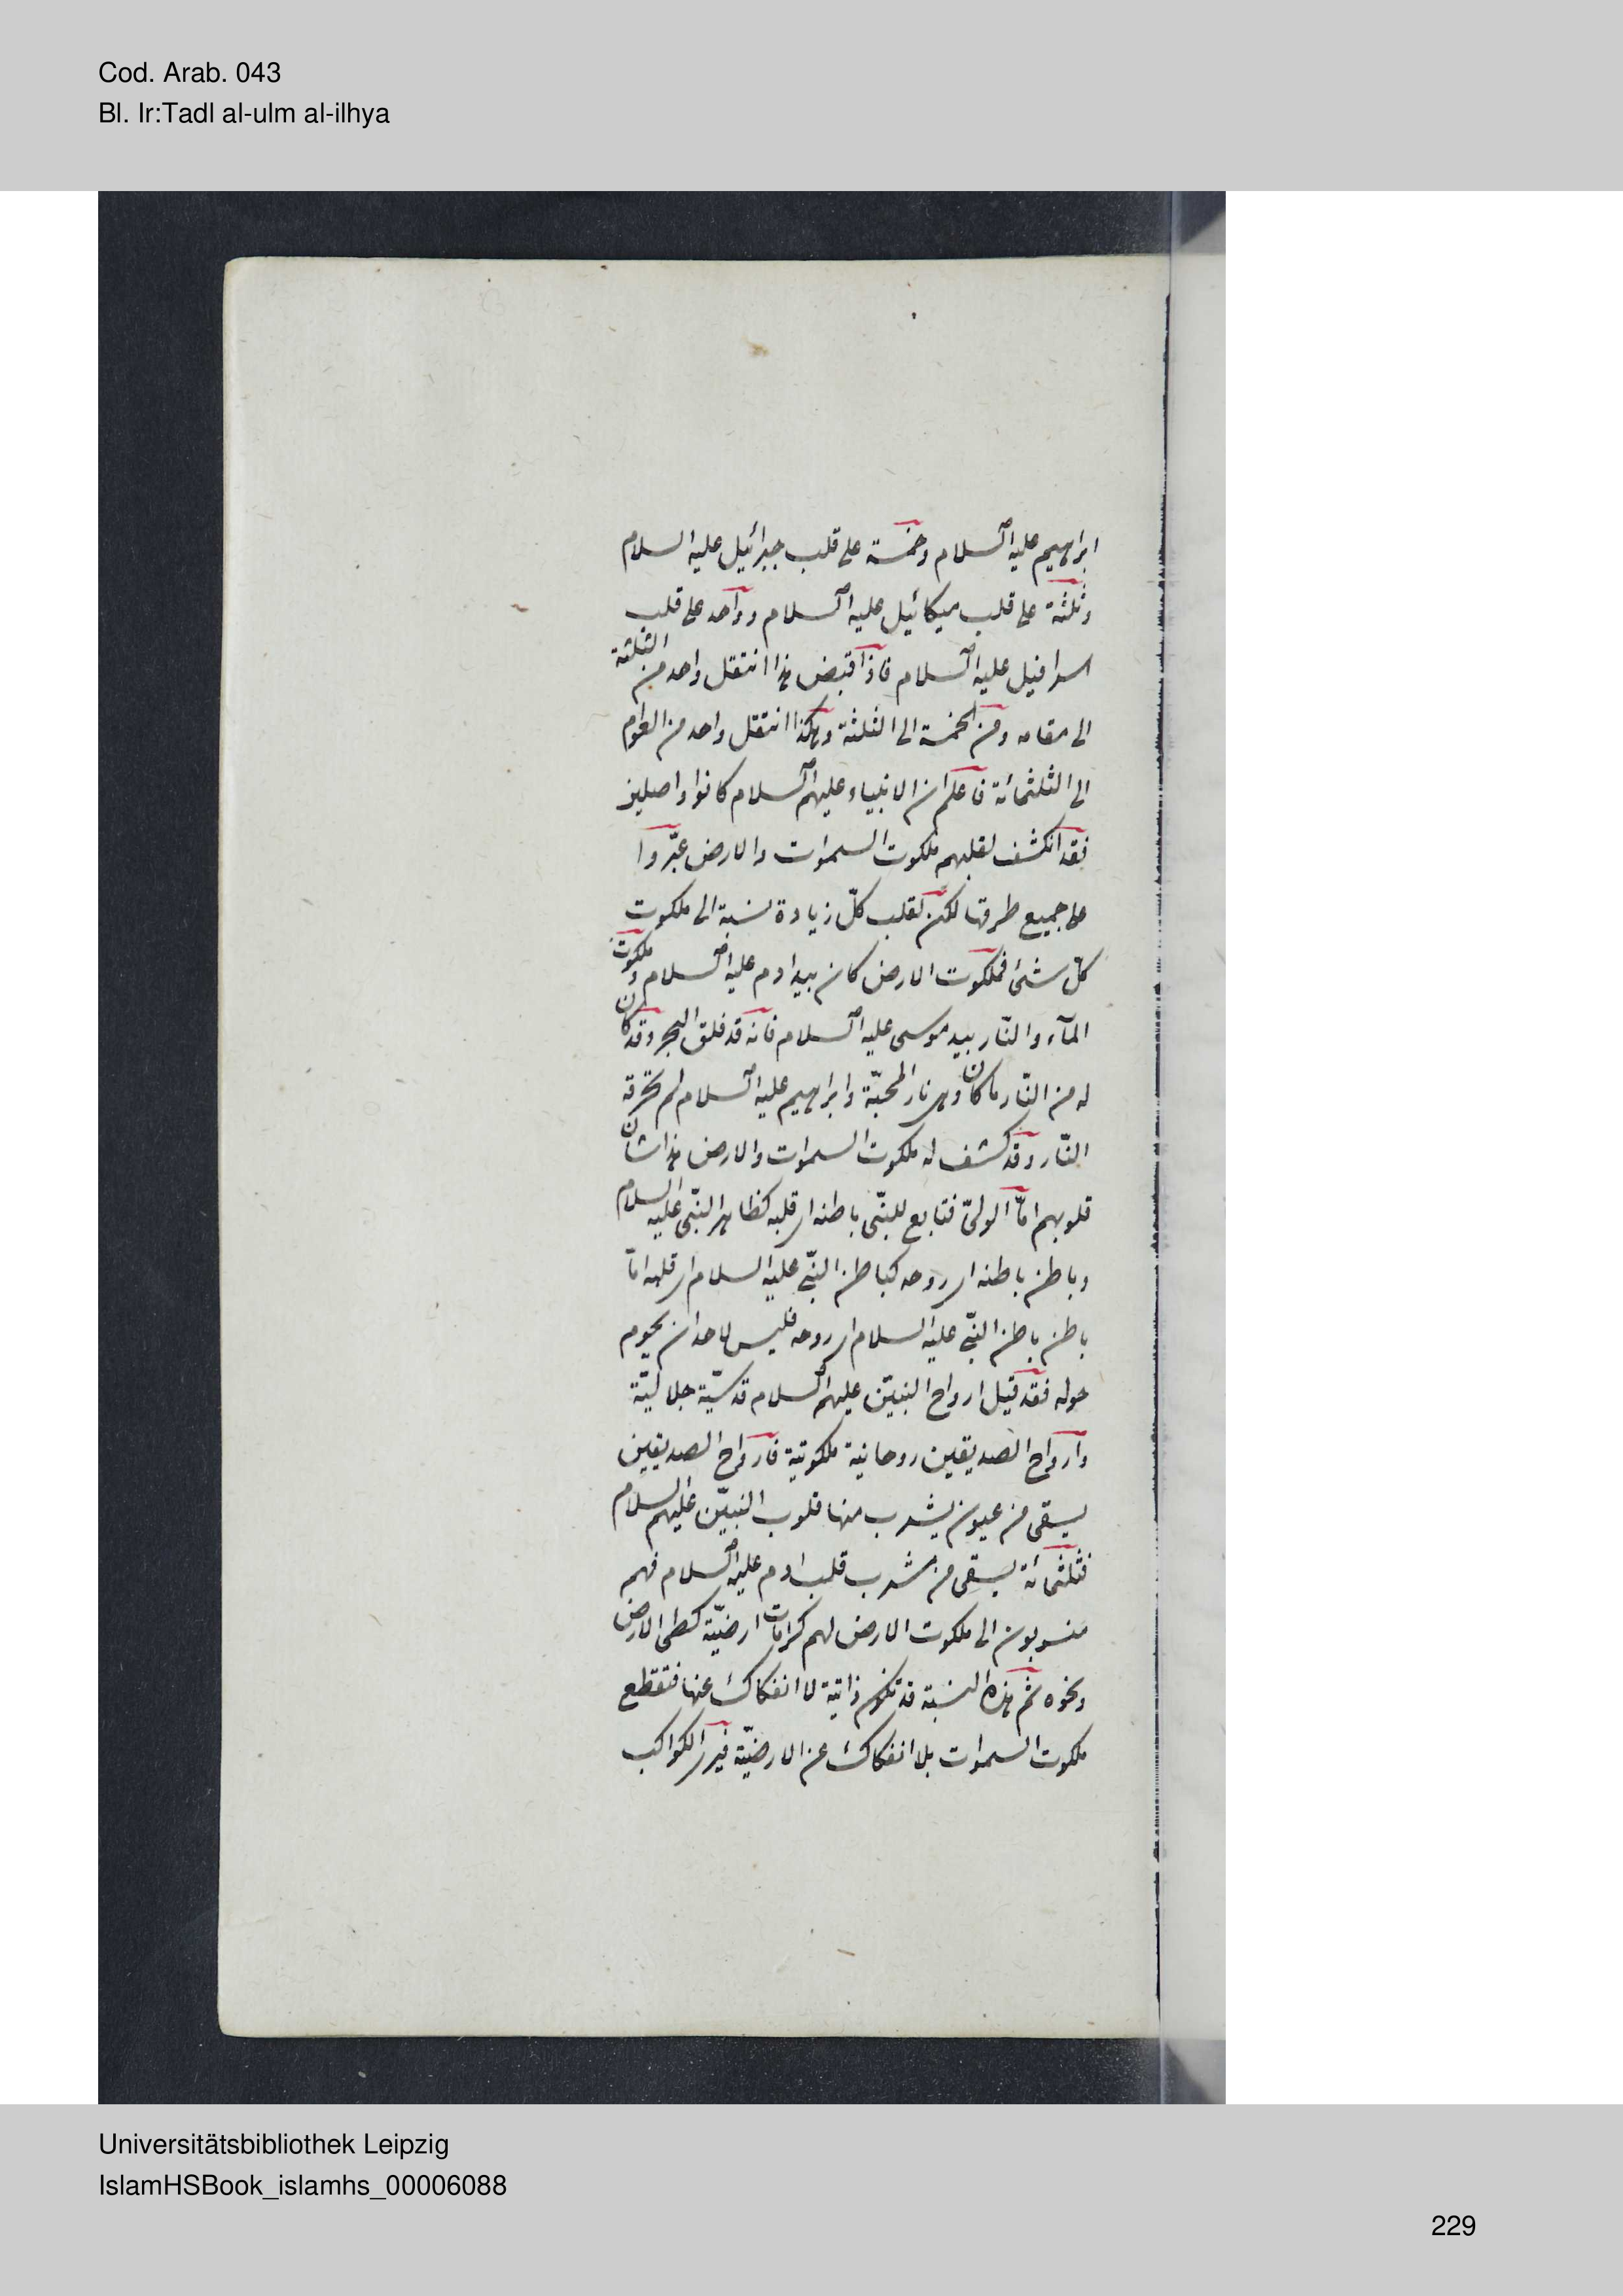 Cod. Arab. 043
Bl. Ir:Tadl al-ulm al-ilhya
ابراهيم عليه السلام وخمسة على قلب جبرائيل عليه السلام
وثلثة على قلب ميكائيل عليه السلام وواحد على قلب
اسرافيل عليه السلام فاذا قبض هذا انتقل واحد من الثلثة
الى مقامه ومن الخمسة الى الثلثة وهكذا انتقل واحد من العوام
الى الثلثمائة فاعلم ان الانبياء عليهم السلام كانوا واصلين
فقد انكشف لقلبهم ملكوت السموات والارض عبّروا
على جميع طرقها لكن لقلب كلّ زيادة نسبة الى ملكوت
كلّ شئ فملكوت الارض كان بيد ادم عليه السلام وملكوت
المآء والنّار بيد موسى عليه السلام فانّه قد فلق البحر وقد كان
له من النّار ما كان وهى نار المحبّة وابراهيم عليه السلام لم تحرقه
النّار وقد كشف له ملكوت السموات والارض هذا شان
قلوبهم امّا الولىّ فتابع للنّبى باطنه اى قلبه كظاهر النّبى عليه السلام
وباطن باطنه اى روحه كباطن النّبى عليه السلام اى قلبه امّا
باطن باطن النّبى عليه السلام اى روحه فليس لاحد ان يحوم
حوله فقد قيل ارواح النبيّن عليهم السلام قدسيّة جلاليّة
وارواح الصديقين روحانية ملكوتية فارواح الصديقين
يسقى من عيون يشرب منها قلوب النبيّن عليهم السلام
فثلثمائة يسقى من مشرب قلب ادم عليه السلام فهم
منسوبون الى ملكوت الارض لهم كرامات ارضيّة كطى الارض
ونحوه ثم هذه النسبة قد تكون ذاتية لا انفكاك عنها فتقطع
ملكوت السموات بلا انفكاك عن الارضيّة فيرى الكواكب
Universitätsbibliothek Leipzig
IslamHSBook_islamhs_00006088
229